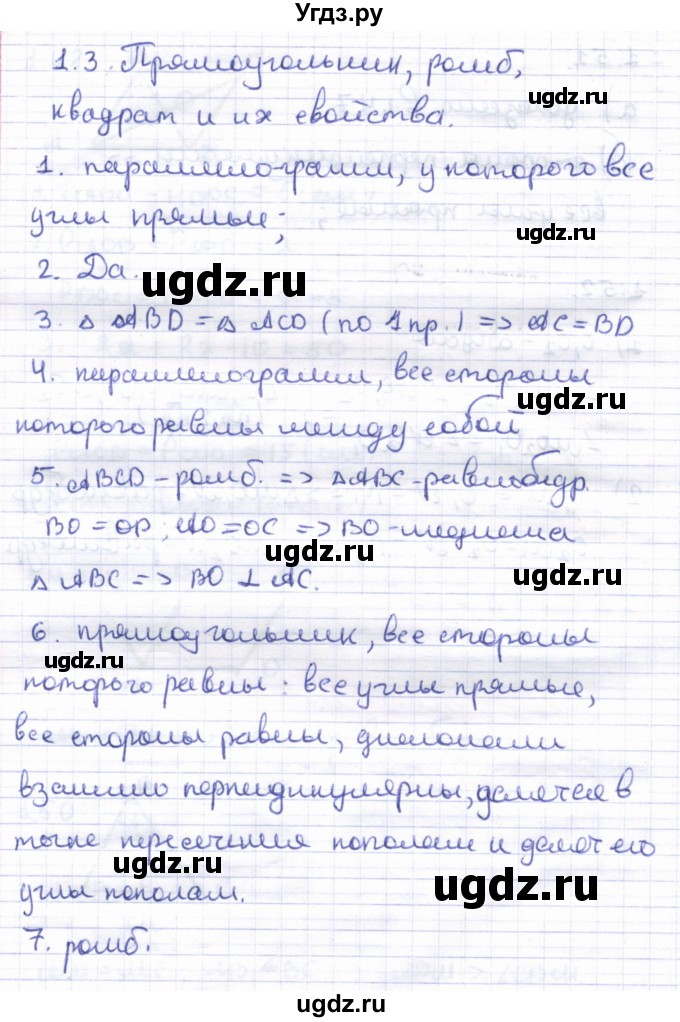 Угдз.ру
1.3. Прямоугольник, ромб,
квадрат и их свойства.
ugdz.ru
1. параллелограмм, у которого все
углы прямые;
ugdz.ru
2. Да.
ugdz.ru
3. Δ ABD = Δ ACD (по 1 пр.) => AC = BD
4. параллелограмм, все стороны
ugdz.ru
которого равны между собой
5. ABCD - ромб. => ΔABC - равнобедр.
BO = OD; AO = OC => BO - медиана
ugdz.ru
Δ ABC => BO ⊥ AC.
ugdz.ru
6. прямоугольник, все стороны
ugdz.ru
которого равны: все углы прямые,
все стороны равны, диагонали
взаимно перпендикулярны, делятся в
точке пересечения пополам и делят его
ugdz.ru
углы пополам.
ugdz.ru
7. ромб.
ugdz.ru